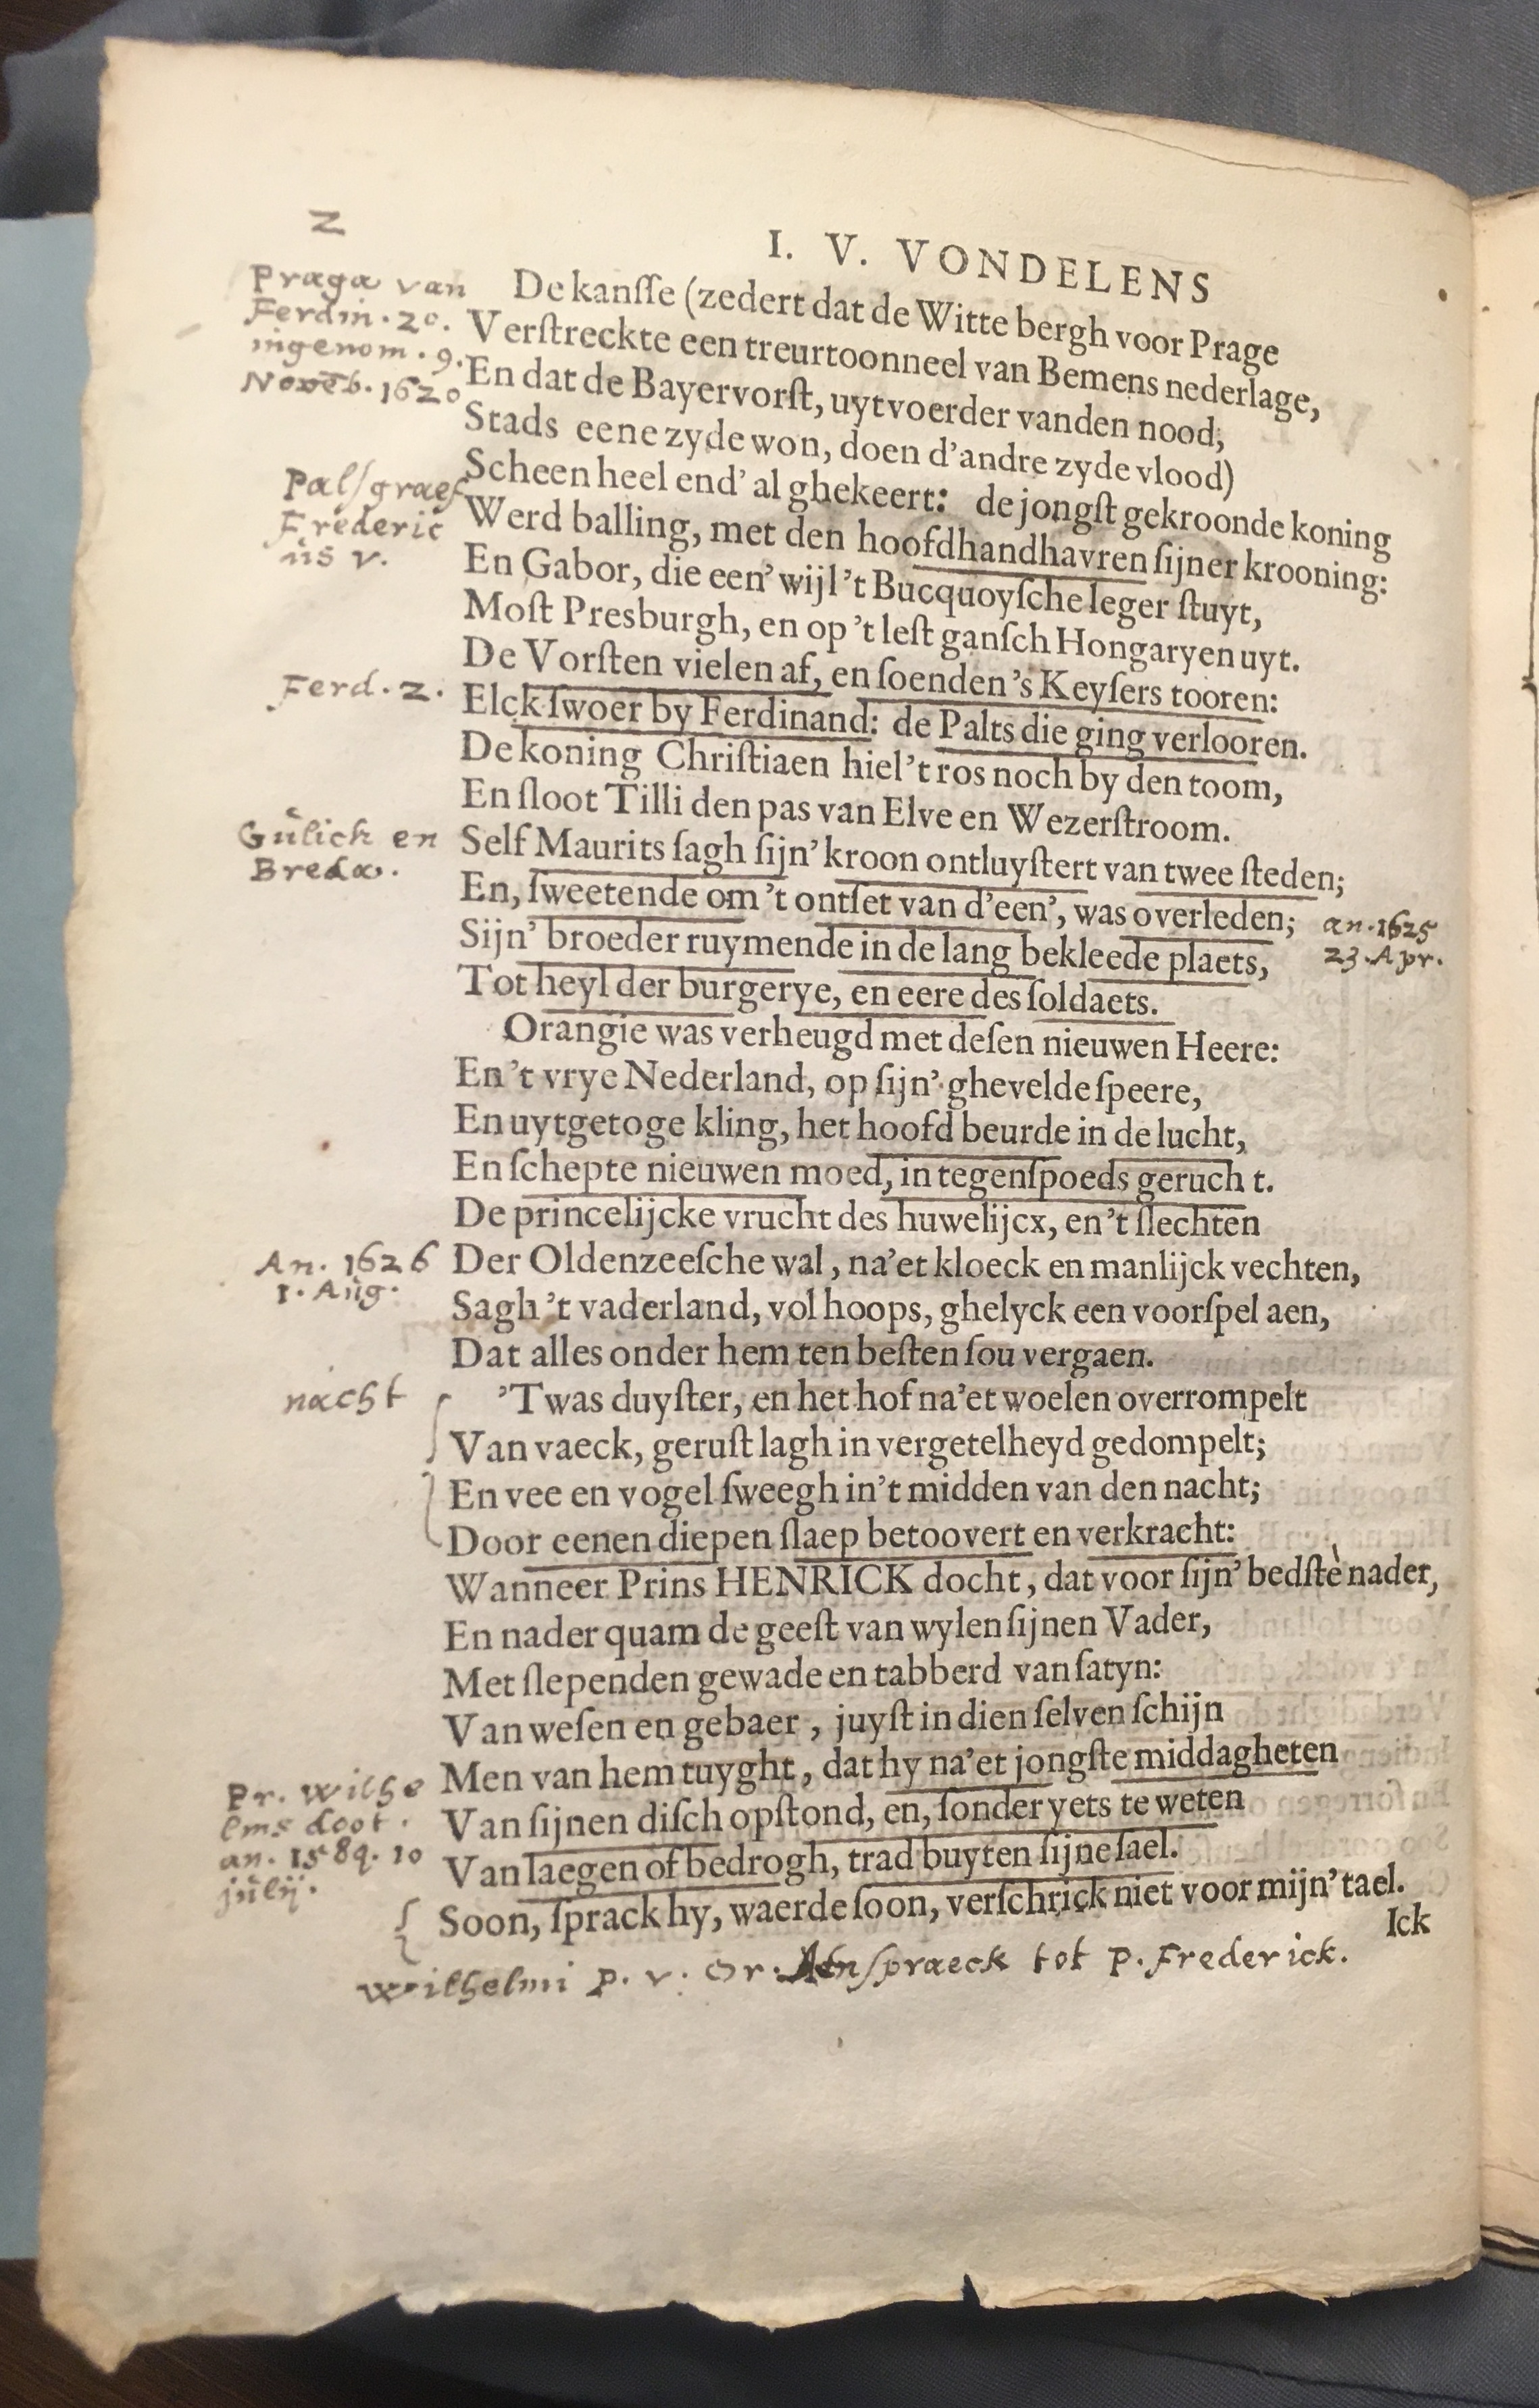 2
I. V. VONDELENS
Praga van
Ferdin. 2o.
ingenom. 9.
Novēb. 1620
De kanſſe (zedert dat de Witte bergh voor Prage
Verſtreckte een treurtoonneel van Bemens nederlage,
En dat de Bayervorſt, uytvoerder vanden nood,
Stads eene zyde won, doen d'andre zyde vlood)
Scheen heel end' al ghekeert: de jongſt gekroonde koning
Palſgraef
Frederic
us v.
Werd balling, met den hoofdhandhavren ſijner krooning:
En Gabor, die een' wijl 't Bucquoyſche leger ſtuyt,
Moſt Presburgh, en op 't leſt ganſch Hongaryen uyt.
De Vorſten vielen af, en ſoenden 's Keyſers tooren:
Ferd. 2.
Elck ſwoer by Ferdinand: de Palts die ging verlooren.
De koning Chriſtiaen hiel 't ros noch by den toom,
En ſloot Tilli den pas van Elve en Wezerſtroom.
Gulick en
Breda.
Self Maurits ſagh ſijn' kroon ontluyſtert van twee ſteden;
En, ſweetende om 't ontſet van d'een', was overleden;
an. 1625
23. Apr.
Sijn' broeder ruymende in de lang bekleede plaets,
Tot heyl der burgerye, en eere des ſoldaets.
Orangie was verheugd met deſen nieuwen Heere:
En 't vrye Nederland, op ſijn' ghevelde ſpeere,
En uytgetoge kling, het hoofd beurde in de lucht,
En ſchepte nieuwen moed, in tegenſpoeds geruch t.
De princelijcke vrucht des huwelijcx, en 't ſlechten
An. 1626
1. Aug.
Der Oldenzeeſche wal, na'et kloeck en manlijck vechten,
Sagh 't vaderland, vol hoops, ghelyck een voorſpel aen,
Dat alles onder hem ten beſten ſou vergaen.
nacht
'Twas duyſter, en het hof na'et woelen overrompelt
Van vaeck, geruſt lagh in vergetelheyd gedompelt;
En vee en vogel ſweegh in't midden van den nacht;
Door eenen diepen ſlaep betoovert en verkracht:
Wanneer Prins HENRICK docht, dat voor ſijn' bedſtè nader,
En nader quam de geeſt van wylen ſijnen Vader,
Met ſlependen gewade en tabberd van ſatyn:
Van weſen en gebaer, juyſt in dien ſelven ſchijn
Men van hem tuyght, dat hy na'et jongſte middagheten
Pr. Wilhe
lms doot.
an. 1584. 10
julij.
Van ſijnen diſch opſtond, en, ſonder yets te weten
Van laegen of bedrogh, trad buyten ſijne ſael.
Soon, ſprack hy, waerde ſoon, verſchrick niet voor mijn' tael.
Ick
Wilhelmi P. v. Or. Aenſpraeck tot P. Frederick.